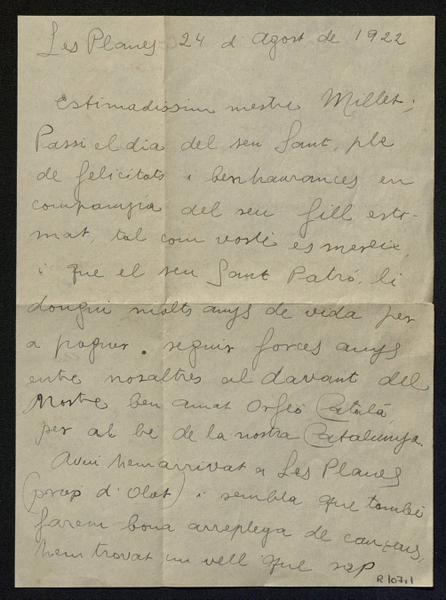 Les Planes 24 d'Agost de 1922
Estimadissim mestre Millet;
Passi el dia del seu Sant, ple
de felicitats i benhaurances en
companyia del seu fill esti-
mat tal com vosté es mereix,
i que el seu Sant Patró, li
dongui molts anys de vida per
a poguer seguir forces anys
entre nosaltres al davant del
Nostre ben amat Orfeó Català
per al be de la nostra Catalunya.
Avui hem arrivat a Les Planes
(prop d'Olot) i sembla que també
farem bona arreplega de cançons,
hem trovat un vell que sap
R 107,1